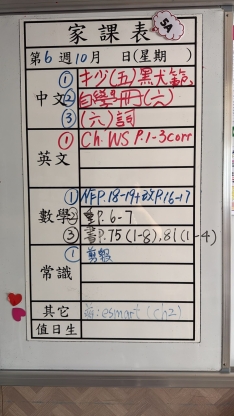 家課表
5A
第 6 週 10 月 日(星期 )
中文
① 抄(五)黑犬籠
② 自學冊(六)
③ (六)詞
英文
① Ch. WS P.1-3 corr
數學
① P.18-19+改P.16-17
② P.6-7
③ 書P.75(1-8), 81(1-4)
常識
① 剪報
其它
esmart (ch2)
值日生